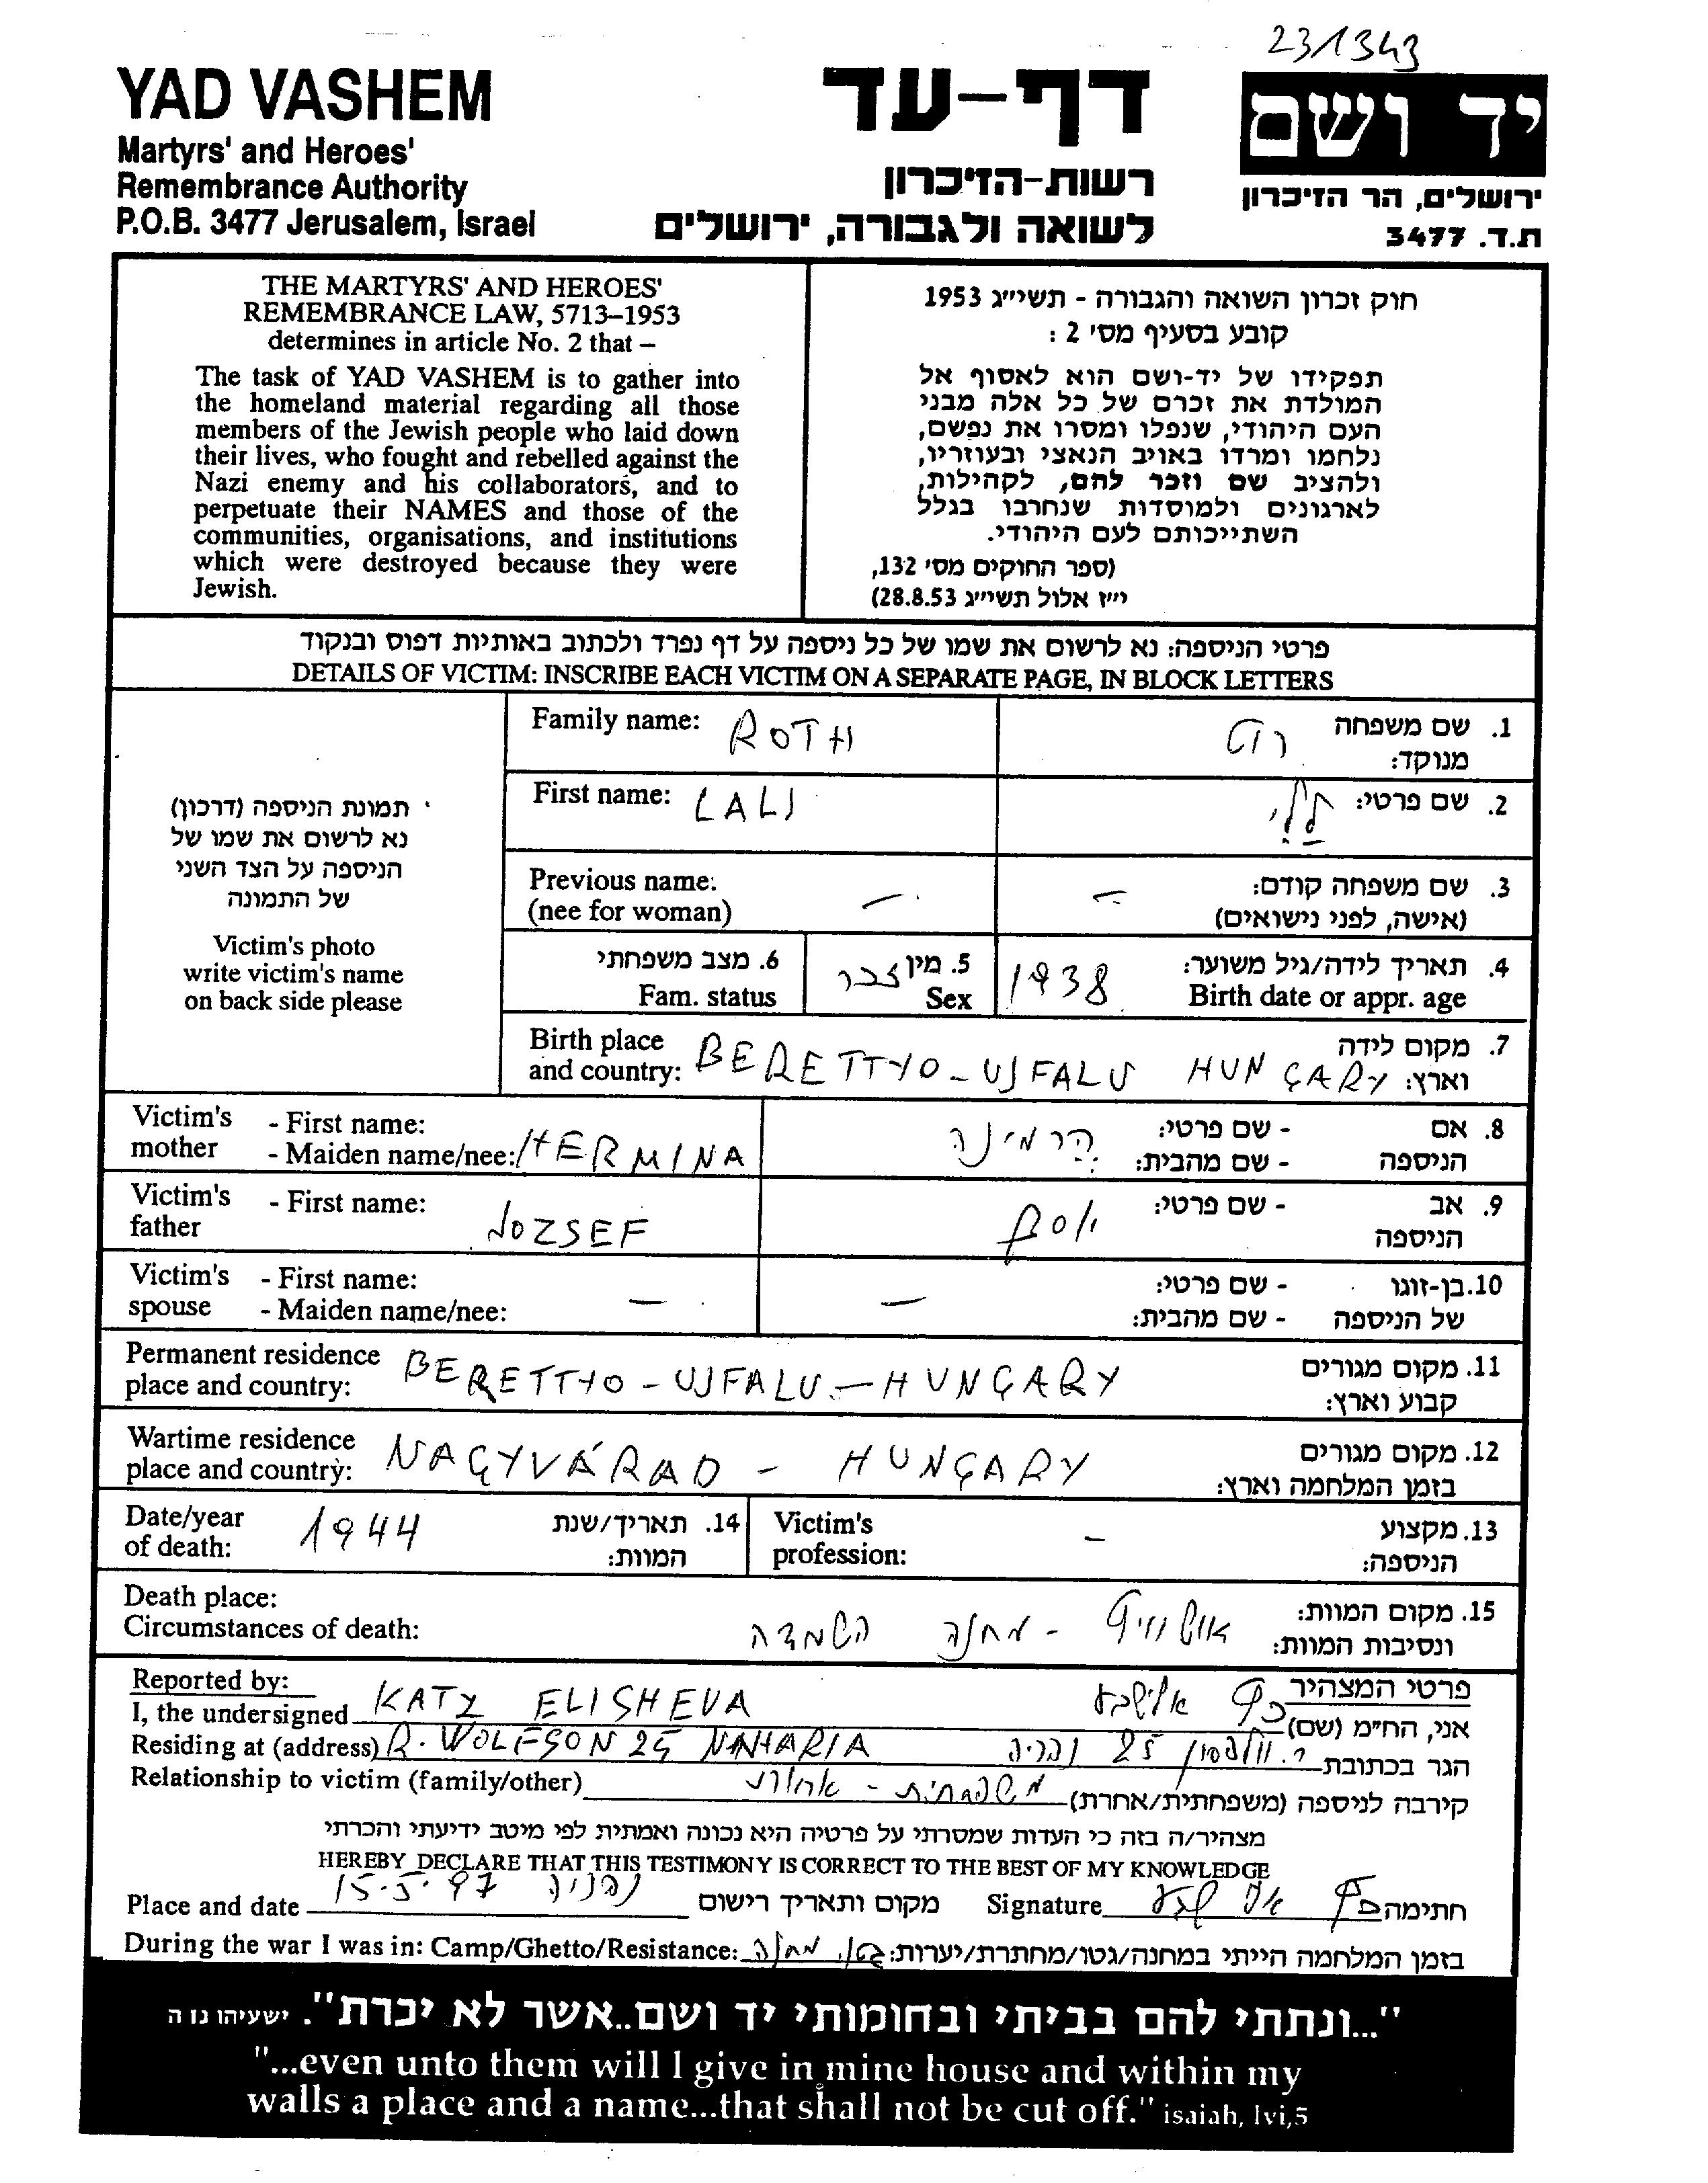 231343
YAD VASHEM
Martyrs' and Heroes'
Remembrance Authority
P.O.B. 3477 Jerusalem, Israel
דף-עד
רשות-הזיכרון
לשואה ולגבורה, ירושלים
יד ושם
ירושלים, הר הזיכרון
ת.ד. 3477
THE MARTYRS' AND HEROES'
REMEMBRANCE LAW, 5713–1953
determines in article No. 2 that –
The task of YAD VASHEM is to gather into
the homeland material regarding all those
members of the Jewish people who laid down
their lives, who fought and rebelled against the
Nazi enemy and his collaborators, and to
perpetuate their NAMES and those of the
communities, organisations, and institutions
which were destroyed because they were
Jewish.
חוק זכרון השואה והגבורה - תשי״ג 1953
קובע בסעיף מס׳ 2 :
תפקידו של יד-ושם הוא לאסוף אל
המולדת את זכרם של כל אלה מבני
העם היהודי, שנפלו ומסרו את נפשם,
נלחמו ומרדו באויב הנאצי ובעוזריו,
ולהציב שם וזכר להם, לקהילות,
לארגונים ולמוסדות שנחרבו בגלל
השתייכותם לעם היהודי.
(ספר החוקים מס׳ 132,
י״ז אלול תשי״ג 28.8.53)
פרטי הניספה: נא לרשום את שמו של כל ניספה על דף נפרד ולכתוב באותיות דפוס ובנקוד
DETAILS OF VICTIM: INSCRIBE EACH VICTIM ON A SEPARATE PAGE, IN BLOCK LETTERS
תמונת הניספה (דרכון)
נא לרשום את שמו של
הניספה על הצד השני
של התמונה
Victim's photo
write victim's name
on back side please
Family name: ROTH רוט 1. שם משפחה
מנוקד:
First name: LALI ללי 2. שם פרטי:
Previous name: – – 3. שם משפחה קודם:
(nee for woman) (אישה, לפני נישואים)
6. מצב משפחתי 5. מין זכר 1938 4. תאריך לידה/גיל משוער:
Fam. status Sex Birth date or appr. age
Birth place 7. מקום לידה
and country: BERETTYO-UJFALU HUNGARY וארץ:
Victim's mother - First name: 8. אם הניספה - שם פרטי:
- Maiden name/nee: HERMINA הרמינה - שם מהבית:
Victim's father - First name: JOZSEF יוסף - שם פרטי: 9. אב הניספה
Victim's spouse - First name: - שם פרטי: 10. בן-זוגו
- Maiden name/nee: – – - שם מהבית: של הניספה
Permanent residence 11. מקום מגורים
place and country: BERETTYO-UJFALU - HUNGARY קבוע וארץ:
Wartime residence 12. מקום מגורים
place and country: NAGYVÁRAD - HUNGARY בזמן המלחמה וארץ:
Date/year of death: 1944 14. תאריך/שנת המוות:
Victim's profession: – 13. מקצוע הניספה:
Death place: 15. מקום המוות:
Circumstances of death: אושוויץ - מחנה השמדה ונסיבות המוות:
Reported by: פרטי המצהיר
I, the undersigned KATZ ELISHEVA כץ אלישבע אני, הח״מ (שם)
Residing at (address) R. WOLFSON 25 NAHARIA ר. וולפסון 25 נהריה הגר בכתובת
Relationship to victim (family/other) משפחתית - קירבה לניספה (משפחתית/אחרת)
מצהיר/ה בזה כי העדות שמסרתי על פרטיה היא נכונה ואמתית לפי מיטב ידיעתי והכרתי
HEREBY DECLARE THAT THIS TESTIMONY IS CORRECT TO THE BEST OF MY KNOWLEDGE
Place and date 15.5.97 נהריה מקום ותאריך רישום Signature כץ אלישבע חתימה
During the war I was in: Camp/Ghetto/Resistance: גטו, מחנה בזמן המלחמה הייתי במחנה/גטו/מחתרת/יערות:
"...ונתתי להם בביתי ובחומותי יד ושם..אשר לא יכרת". ישעיהו נו ה
"...even unto them will I give in mine house and within my
walls a place and a name...that shall not be cut off." isaiah, lvi,5